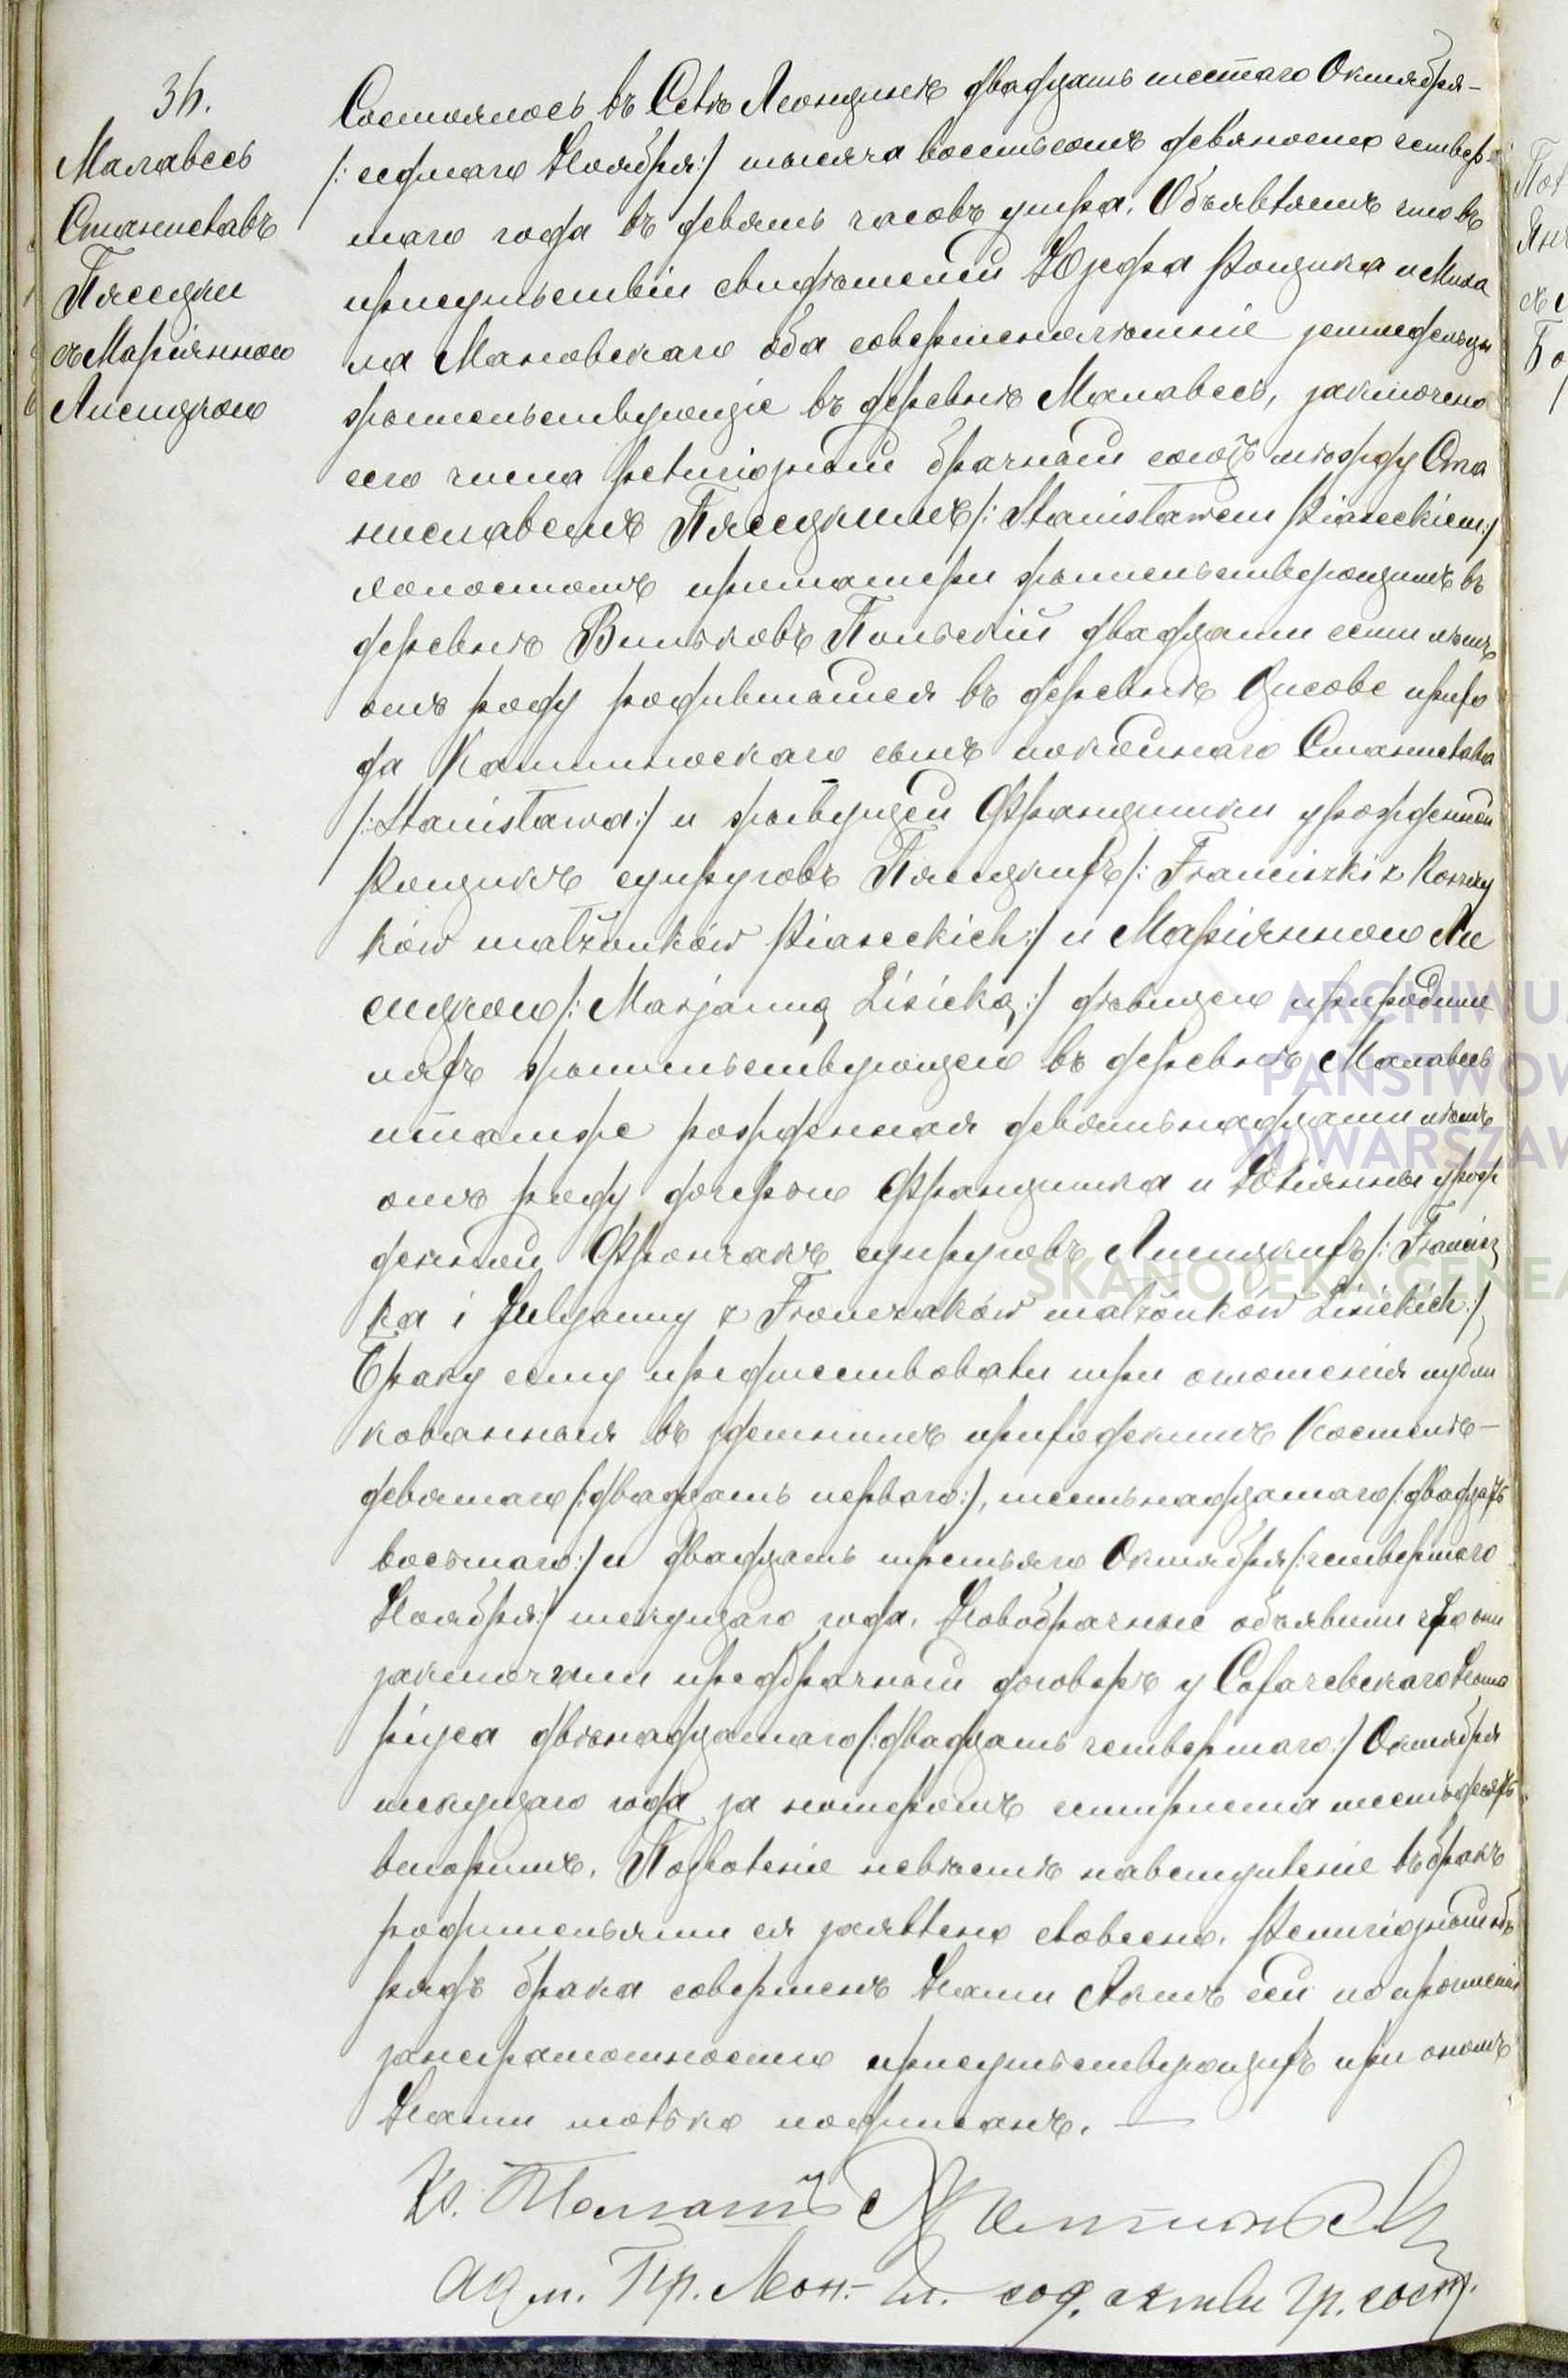 36.
Малавесь
Станиславъ
Пясецки
съ Маріянною
Лисицкою
Состоялось въ Селѣ Леонцинѣ двадцать шестаго Октября
/: седмаго Ноября :/ тысяча восемьсотъ девяносто четвер
таго года въ девять часовъ утра. Объявляемъ что въ
присутьствіи свидѣтелей Юзефа Рощика и Миха
ла Маковскаго оба совершенолѣтніе земледельцы
жительствующіе въ деревнѣ Малавесь, заключено
сего числа религіозный брачный союзъ между Ста
ниславемъ Пясецкимъ /: Stanisławem Piaseckiem :/
холостомъ приматери жительствующимъ въ
деревнѣ Вильковъ Польскій двадцати семи лѣтъ
отъ роду родившымся въ деревнѣ Цисове прихо
да Кампиноскаго сынъ покойнаго Станислава
/: Stanisława :/ и живущей Францишки урожденной
Рощикъ супруговъ Пясецкихъ /: Franciszki z Roszczy
ków małżonków Piaseckich :/ и Маріянною Ли
сицкою /: Marjanną Lisicką :/ дѣвицею природите
ляхъ жительствующею въ деревнѣ Малавесь
итамже рожденная девятьнадцати лѣтъ
отъ роду дочерью Францишка и Юліянны урож
денной Фрончакъ супруговъ Лисицкихъ /: Francisz
ka i Julyanny z Fronczaków małżonków Lisickich :/
Браку сему предшествовали три оглошенія публи
кованныя въ здешнимъ приходскимъ Костелѣ
девятаго /: двадцать перваго :/, шестьнадцатаго /: двадцать
восьмаго :/ и двадцать третьяго Октября /: четвертаго
Ноября :/ текущаго года. Новобрачные объявили что они
заключили предбрачный договоръ у Сохачевскаго Нота
ріуса двѣнадцатаго /: двадцать четвертаго :/ Октября
текущаго года за номеромъ шестьдесять
вторимъ. Позволеніе невѣстѣ навступленіе въ бракъ
родительями ея заявлено словесно. Религіозный об
рядъ брака совершенъ Нами Актъ сей по прочтеніи
занеграмотностью присутьствующихъ при ономъ
Нами только подписанъ.
Кс.
Адм. Пр. Леон. сод. акты гр. сост.
ARCHIWU
PAŃSTWOW
W WARSZAW
SKANOTEKA.GENEA